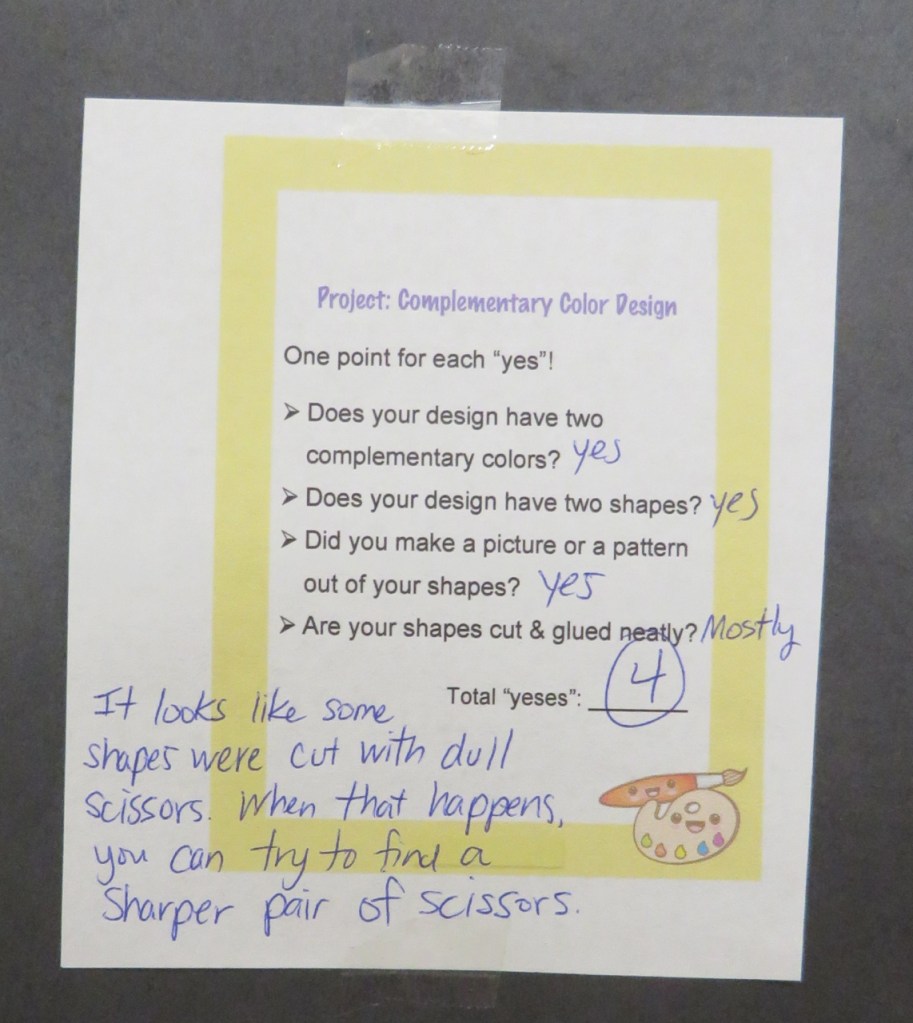 Project: Complementary Color Design
One point for each “yes”!
➢ Does your design have two
complementary colors? yes
➢ Does your design have two shapes? yes
➢ Did you make a picture or a pattern
out of your shapes? yes
➢ Are your shapes cut & glued neatly? Mostly
Total “yeses”: 4
It looks like some
shapes were cut with dull
scissors. When that happens,
you can try to find a
sharper pair of scissors.